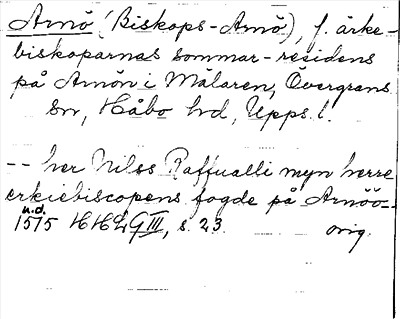 Arnö (Biskops-Arnö), f. ärke-
biskoparnas sommar-residens
på Arnön i Mälaren, Övergrans
sn, Håbo hd, Upps. l.
-- her Nilss Raffualli myn herre
erkiebiscopens fogde på Arnöö--
n.d.
1515 HHL G III, s. 23. orig.